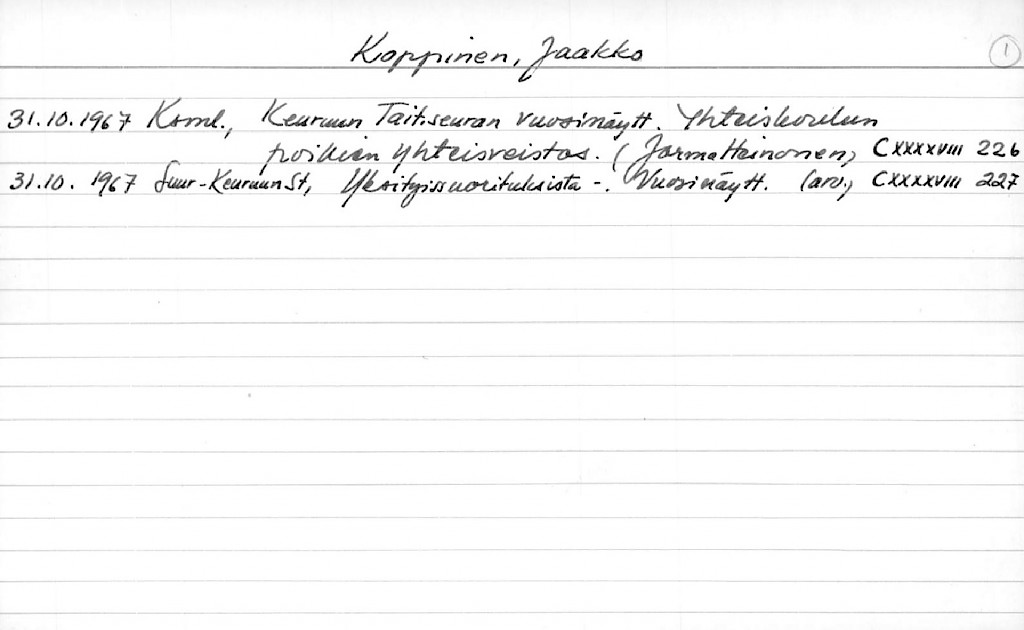 Koppinen, Jaakko 1
31.10.1967 Ksml., Keuruun Tait.seuran vuosinäytt. Yhteiskoulun
poikien yhteisveistos. (Jorma Heinonen) CXXXXVIII 226
31.10. 1967 Suur-Keuruun St, Yksityissuorituksista -. Vuosinäytt. (arv.) CXXXXVIII 227